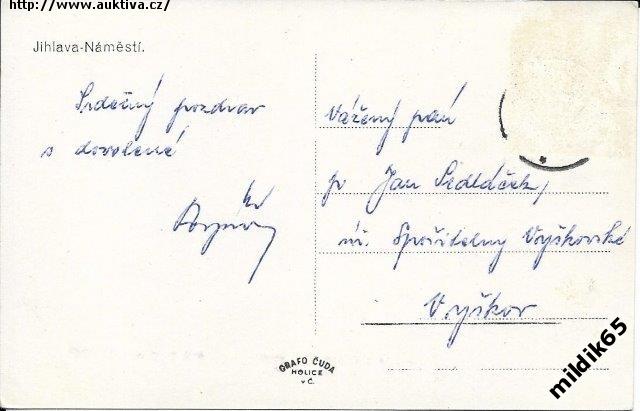 http://www.auktiva.cz/
Jihlava-Náměstí.
Srdečný pozdrav
s dovolené
Vážený pán
p Jan Sedláček,
úř. Spořitelny Vyškovské
Vyškov
GRAFO ČUDA
HOLICE
v Č.
mildik65